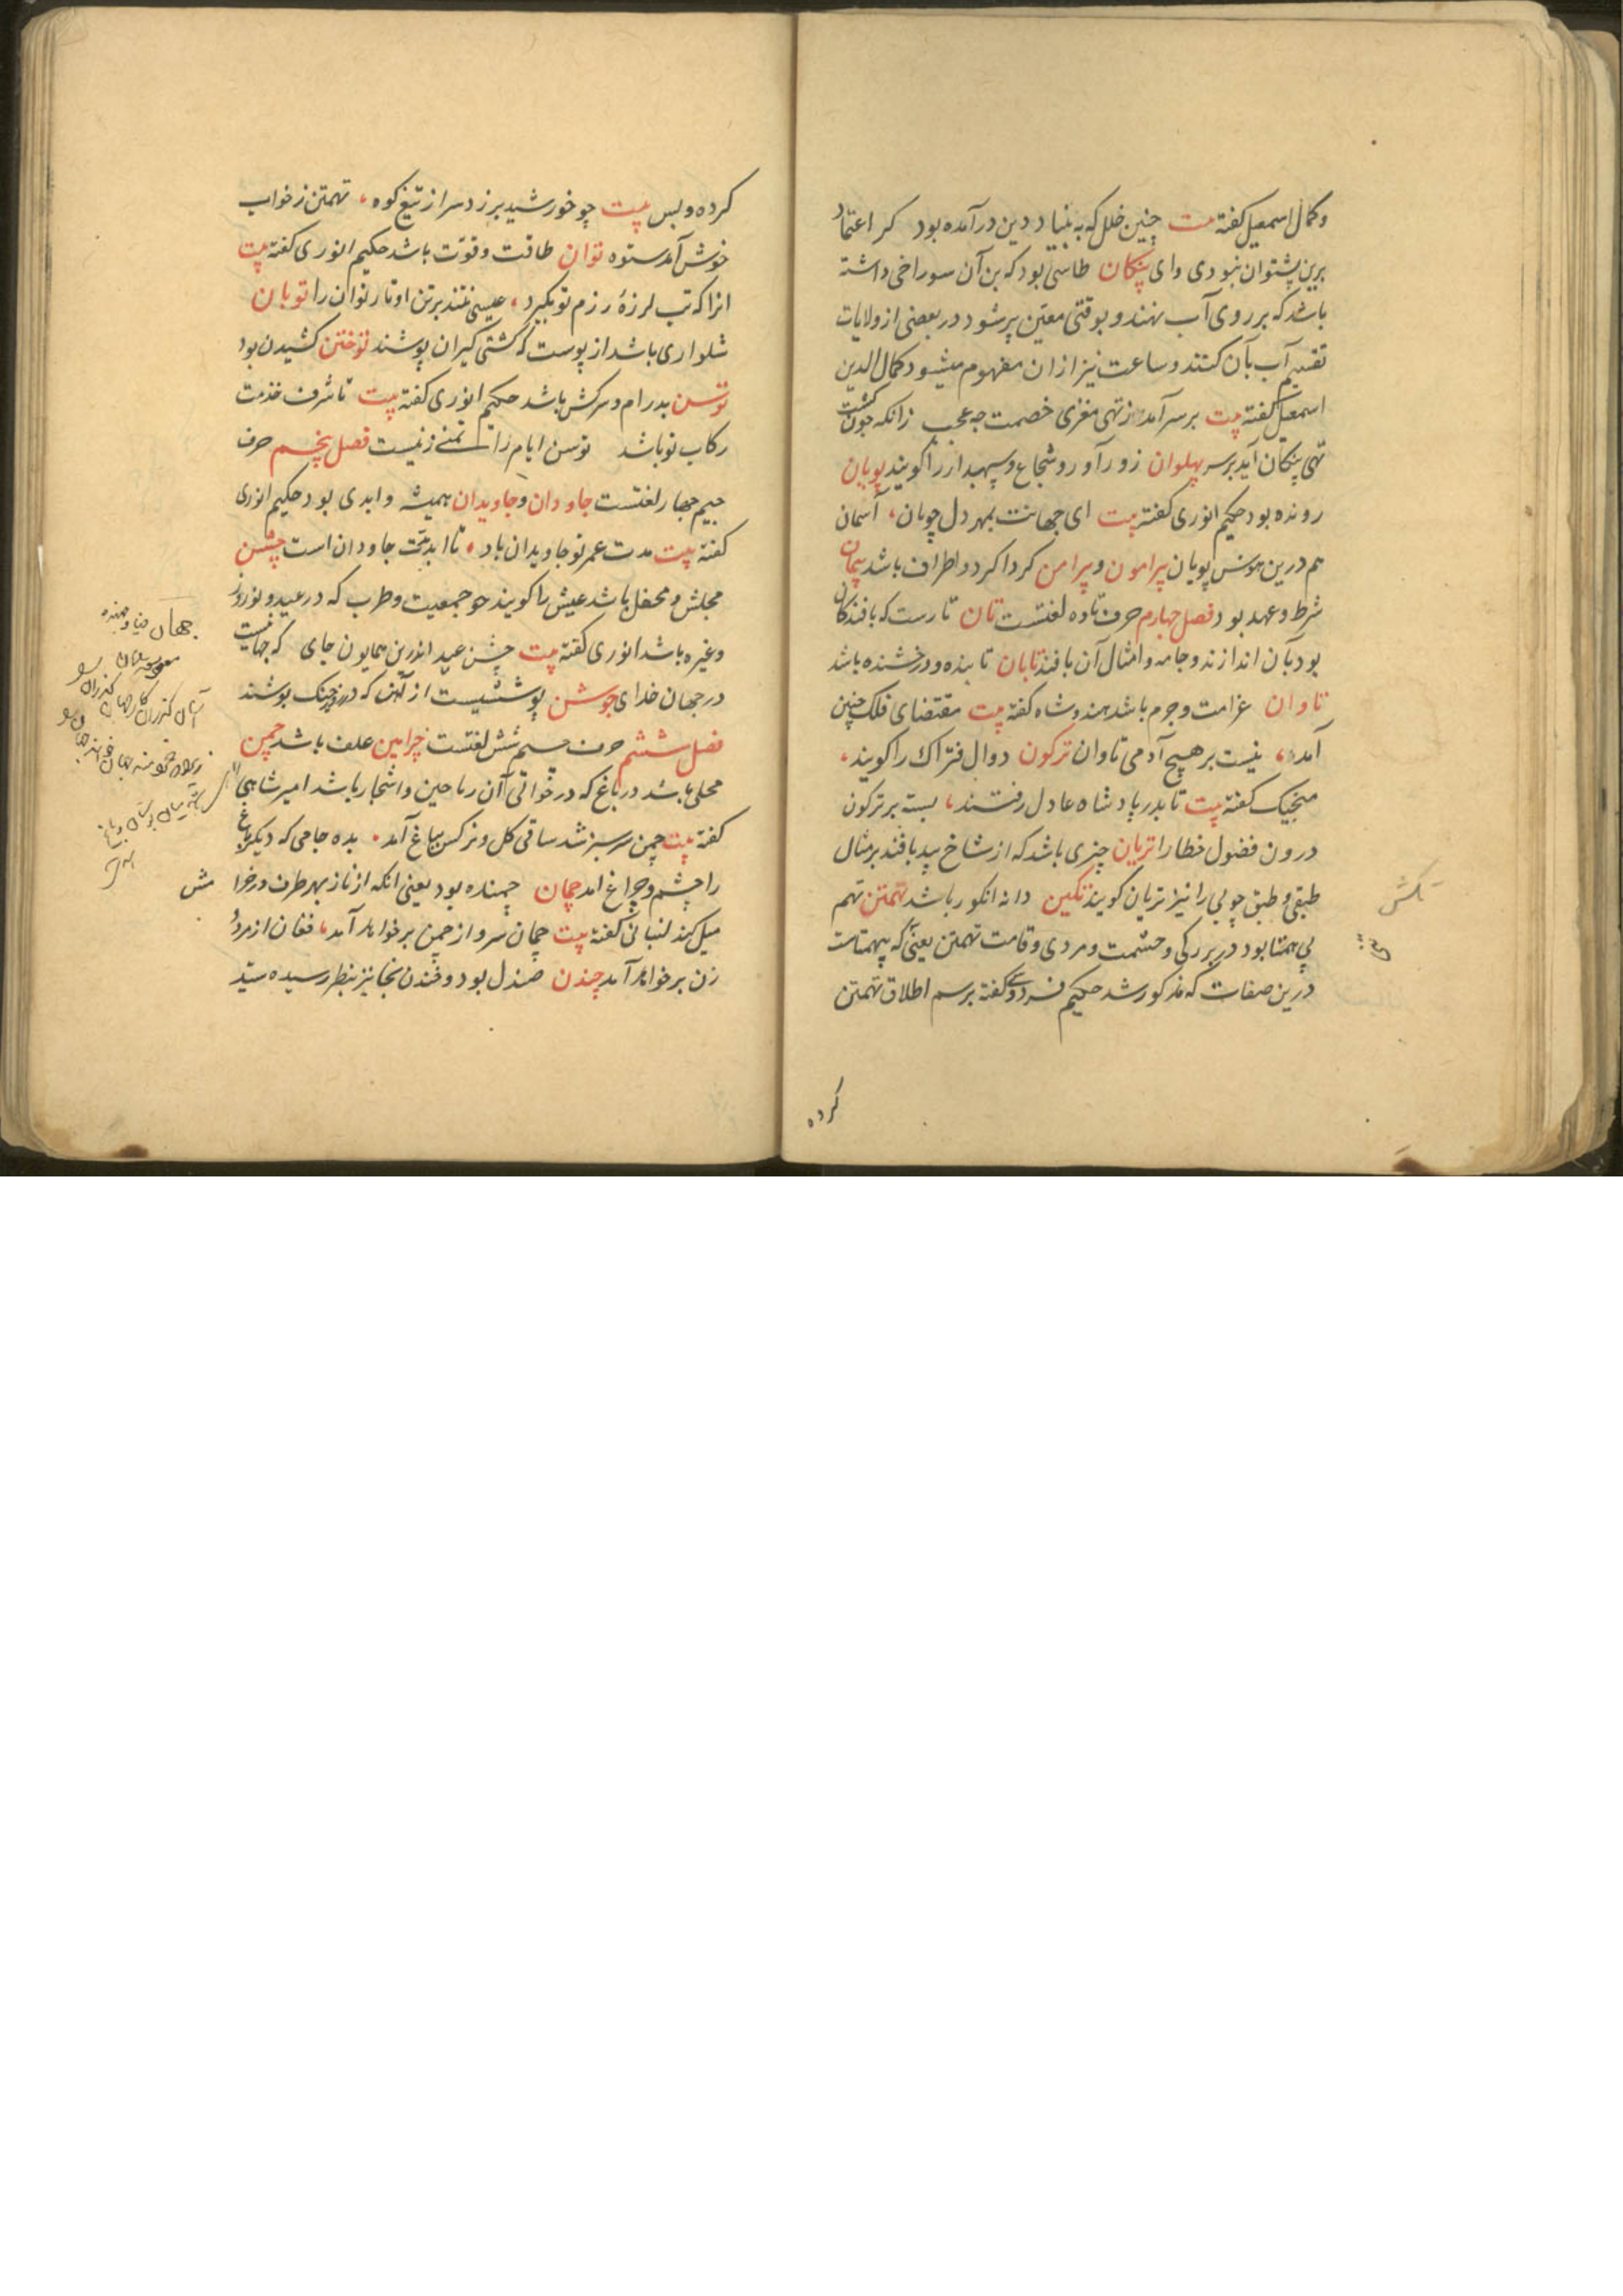 وکمال اسمعیل کفته بیت چنین خلل که به بنیاد دین درآمده بود کر اعتماد
برین پشتوان نبودی وای پنکان طاسی بود که بن آن سوراخی داشته
باشد که بر روی آب نهند و بوقتی معین پر شود در بعضی از ولایات
تقسیم آب بآن کنند و ساعت نیز ازان مفهوم میشود کمال الدین
اسمعیل کفته بیت بر سر آمد ز تهی مغزی خصمت چه عجب زانکه چون کشت
تهی پنکان آید بر سر پهلوان زورآور و شجاع و سپهبدار را کویند پویان
رونده بود حکیم انوری کفته بیت ای جهانت بمهر دل جویان، آسمان
هم درین هوس پویان پیرامون و پیرامن کرداکرد و اطراف باشد پیمان
شرط و عهد بود فصل چهارم حرف تا ده لغتست تان تارست که بافندکان
بود بآن اندازند و جامه و امثال آن بافند تابان تابنده و درخشنده باشد
تاوان غرامت و جرم باشد هندوشاه کفته بیت مقتضای فلک چنین
آمد، نیست بر هیچ آدمی تاوان ترکون دوال فتراک را کویند،
منجیک کفته بیت تا بدر پادشاه عادل رفتند، بسته بر ترکون
درون فضول خطا را تریان چیزی باشد که از شاخ بید بافند بر مثال
طبقی و طبق چوبی را نیز تریان کویند تکین دانه انکور باشد تهمتن تهم
بی همتا بود در بزرکی و حشمت و مردی و قامت تهمتن یعنی که بیهمتاست
درین صفات که مذکور شد حکیم فردوسی کفته برسم اطلاق تهمتن
کرده
تکش
کرده و بس بیت چو خورشید برزد سر از تیغ کوه، تهمتن ز خواب
خوش آمد ستوه توان طاقت و قوت باشد حکیم انوری کفته بیت
انرا که تب لرزهٔ رزم تو بکیرد، عیسی نتند بر تن او تار توان را توبان
شلواری باشد از پوست که کشتی کیران پوشند توختن کشیدن بود
توسن بدرام و سرکش باشد حکیم انوری کفته بیت تا شرف خدمت
رکاب تو باشد توسن ایام را تمنی زینست فصل پنجم حرف
جیم چهار لغتست جاودان و جاویدان همیشه و ابدی بود حکیم انوری
کفته بیت مدت عمر تو جاویدان باد، تا ابد تخت جاودان است جشن
مجلش و محفل باشد عیش را کویند چو جمعیت و طرب که در عید و نوروز
و غیره باشد انوری کفته بیت جشن عید اندرین همایون جای که جهانیست
در جهان خدای جوشن پوششیست از آهن که در روز جنک پوشند
فصل ششم حرف چیم شش لغتست چرامین علف باشد چمن
محلی باشد در باغ که در حوالی آن ریاحین و اشجار باشد امیر شاهی
کفته بیت چمن سرسبز شد ساقی کل و نرکس بباغ آمد، بده جامی که دیکر باغ
را چشم و چراغ امد چمان چمنده بود یعنی انکه از ناز بهر طرف در خرا مش
میل کند لنبانی کفته بیت چمان سرو از چمن بر خواهد آمد، فغان از مرد و
زن بر خواهد آمد چندن صندل بود و خندن بخا نیز بنظر رسیده سید
جهان